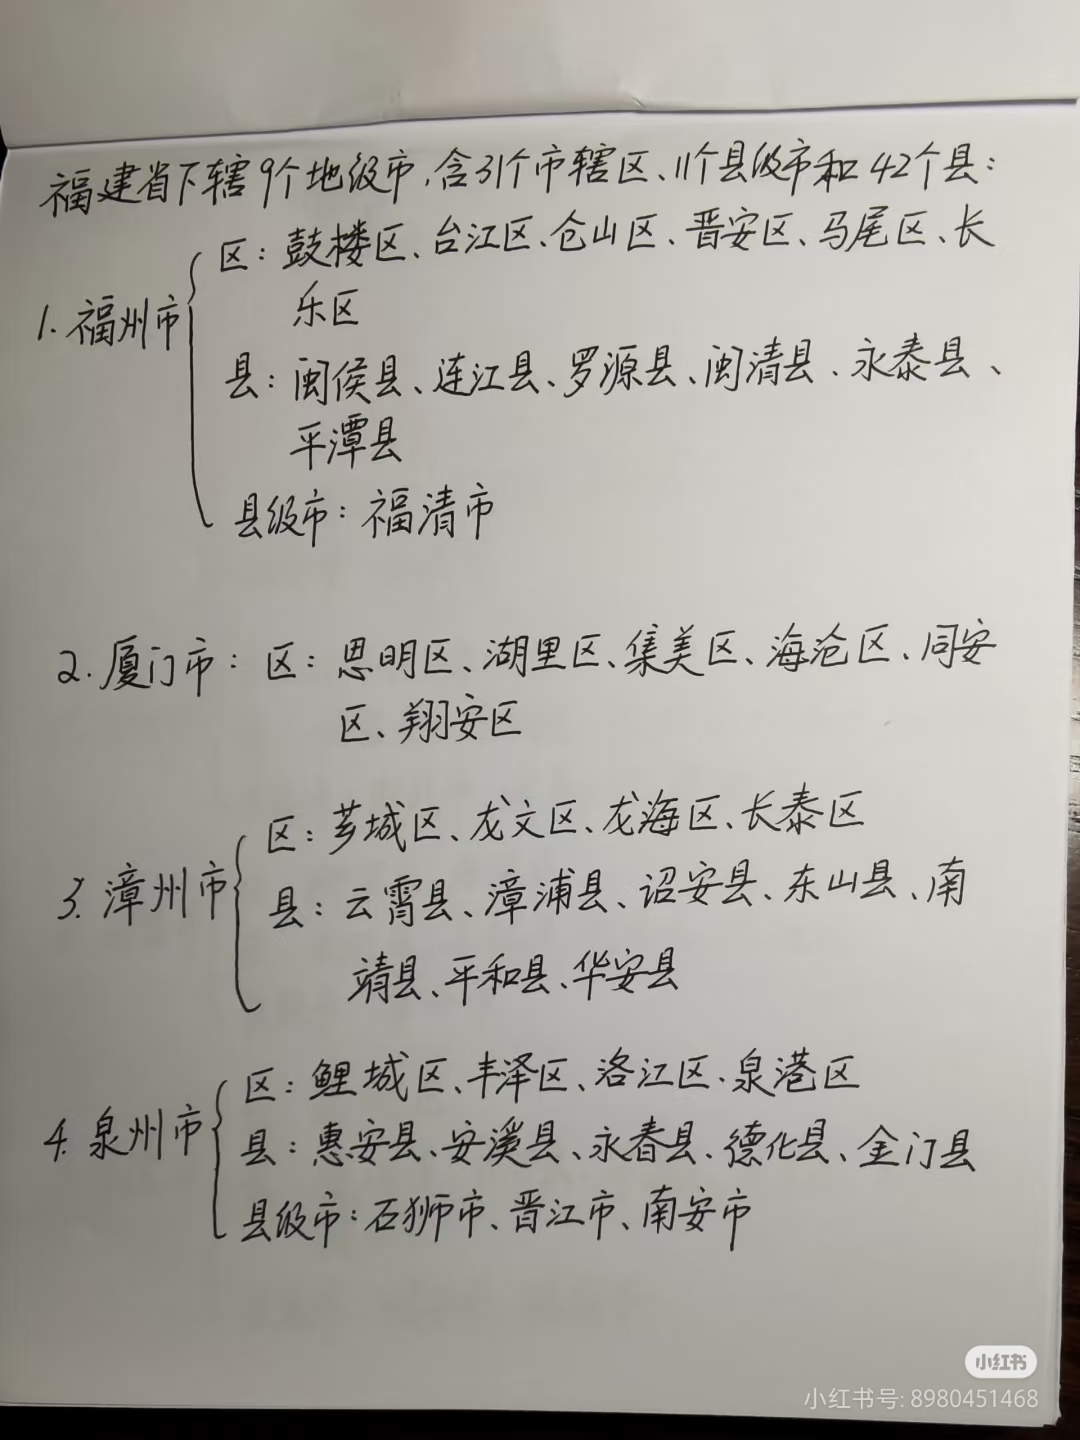 福建省下辖9个地级市,含31个市辖区、11个县级市和42个县:
区:鼓楼区、台江区、仓山区、晋安区、马尾区、长
乐区
1.福州市
县:闽侯县、连江县、罗源县、闽清县、永泰县、
平潭县
县级市:福清市
2.厦门市:区:思明区、湖里区、集美区、海沧区、同安
区、翔安区
区:芗城区、龙文区、龙海区、长泰区
3.漳州市
县:云霄县、漳浦县、诏安县、东山县、南
靖县、平和县、华安县
区:鲤城区、丰泽区、洛江区、泉港区
4.泉州市
县:惠安县、安溪县、永春县、德化县、金门县
县级市:石狮市、晋江市、南安市
小红书
小红书号: 8980451468